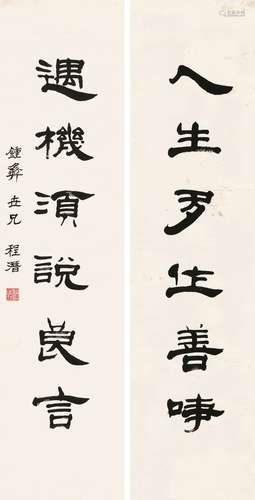 人生多作善事
遇機須說良言
鍾彝世兄 程潛